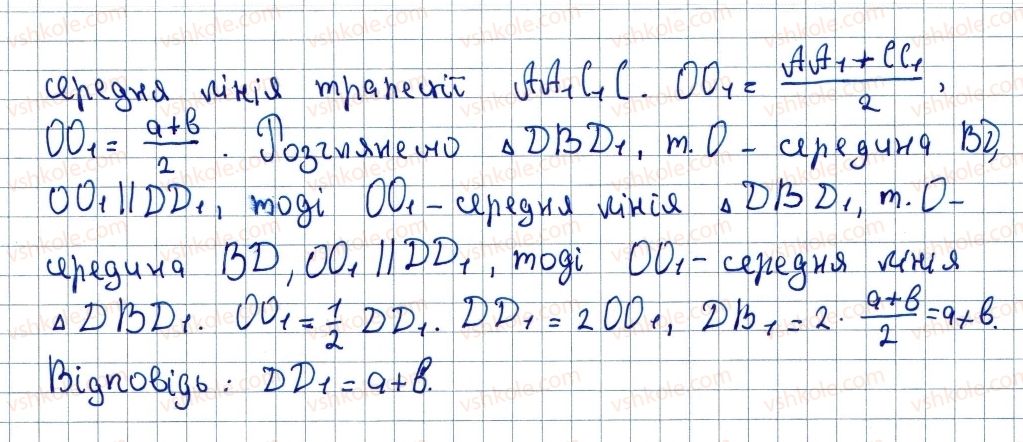 середня лінія трапеції AA₁C₁C. OO₁ = (AA₁ + CC₁)/2,
OO₁ = (a+b)/2. Розглянемо △DBD₁, т.O – середина BD,
OO₁ || DD₁, тоді OO₁ – середня лінія △DBD₁, т.O –
середина BD, OO₁ || DD₁, тоді OO₁ – середня лінія
△DBD₁. OO₁ = 1/2 DD₁. DD₁ = 2OO₁, DB₁ = 2 · (a+b)/2 = a+b.
Відповідь: DD₁ = a+b.